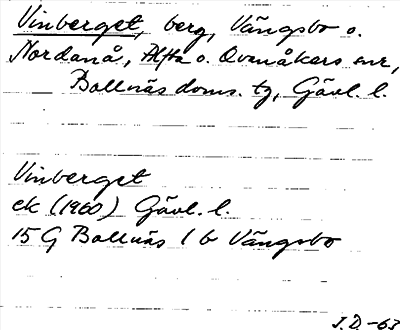 Vinberget, berg, Vängsbo o.
Nordanå, Alfta o. Ovanåkers snr,
Bollnäs doms. tg, Gävl. l.
Vinberget
ek (1960) Gävl. l.
15 G Bollnäs 1 b Vängsbo
J.D.-63